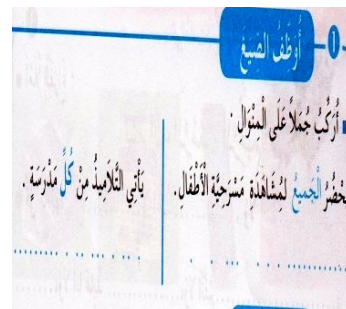 1 أُوَظِّفُ الصِّيَغَ
أُرَكِّبُ جُمَلاً عَلَى الْمِنْوَالِ :
يَحْضُرُ الْجَمِيعُ لِمُشَاهَدَةِ مَسْرَحِيَّةِ الْأَطْفَالِ.
يَأْتِي التَّلَامِيذُ مِنْ كُلِّ مَدْرَسَةٍ .